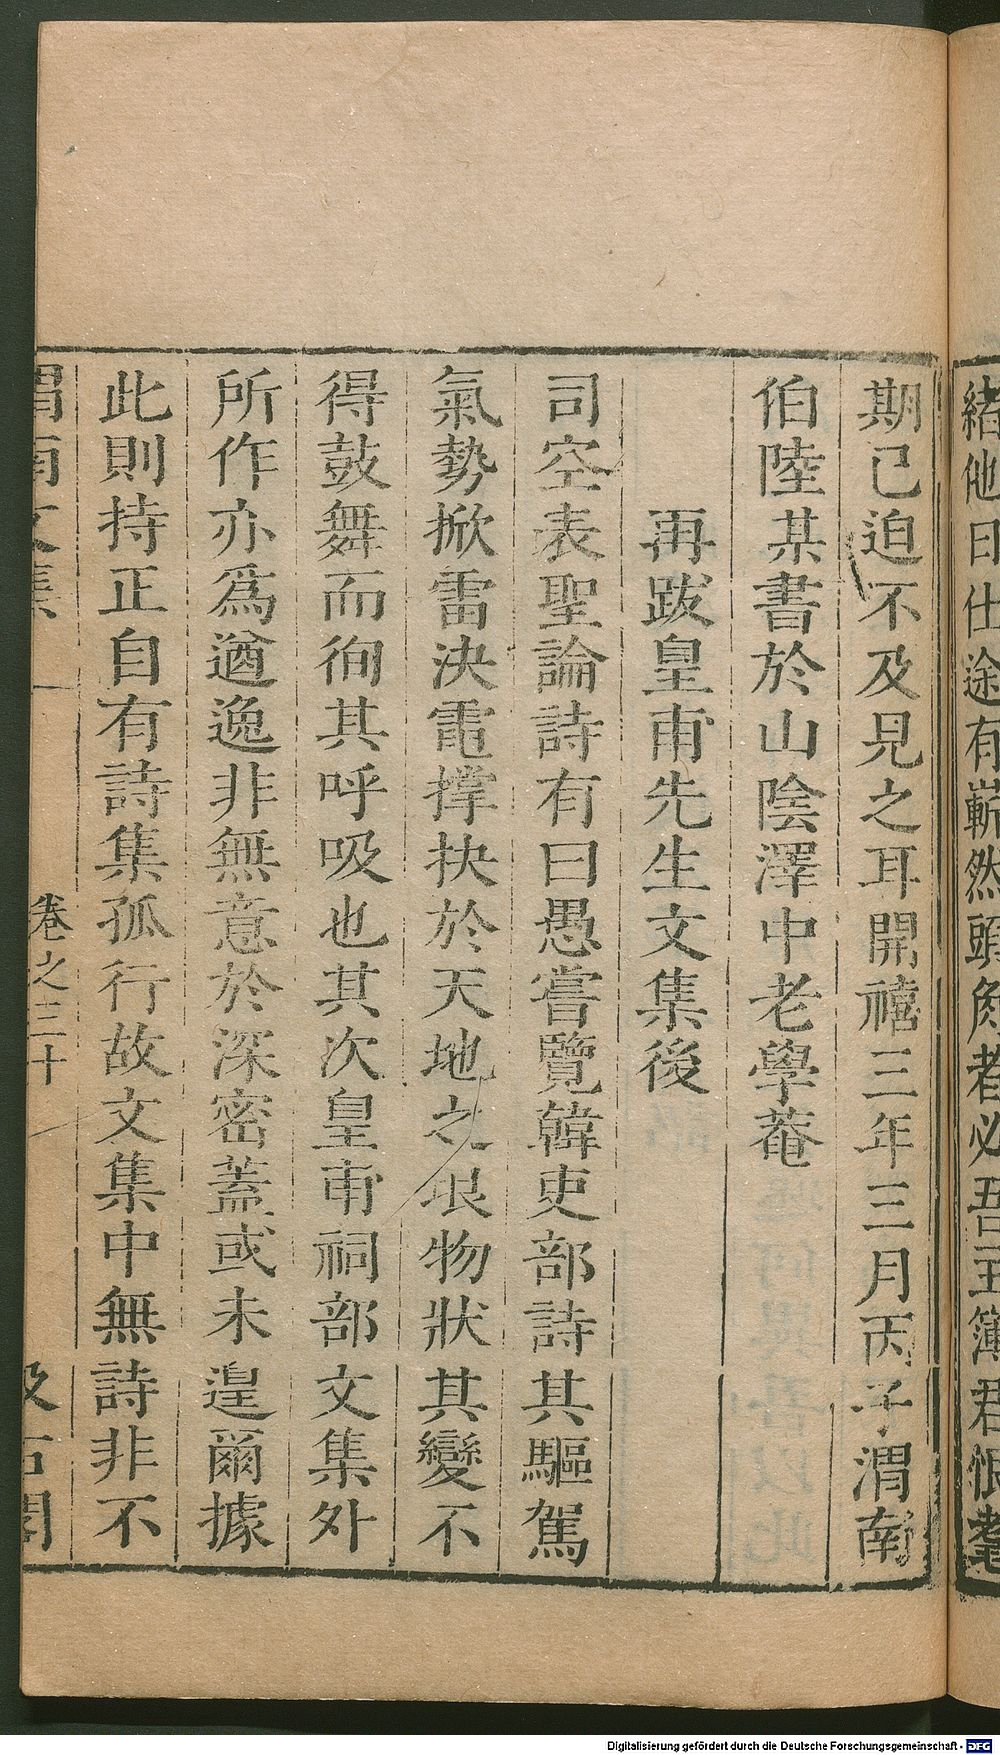 緒他日仕途有嶄然頭角者必吾主簿君恨耄
期已迫不及見之耳開禧三年三月丙子渭南
伯陸某書於山陰澤中老學菴
再跋皇甫先生文集後
司空表聖論詩有曰愚嘗覽韓吏部詩其驅駕
氣勢掀雷決電撑抉於天地之垠物狀其變不
得鼓舞而徇其呼吸也其次皇甫祠部文集外
所作亦爲遒逸非無意於深密蓋或未遑爾據
此則持正自有詩集孤行故文集中無詩非不
渭南文集 卷之三十 汲古閣
Digitalisierung gefördert durch die Deutsche Forschungsgemeinschaft - DFG